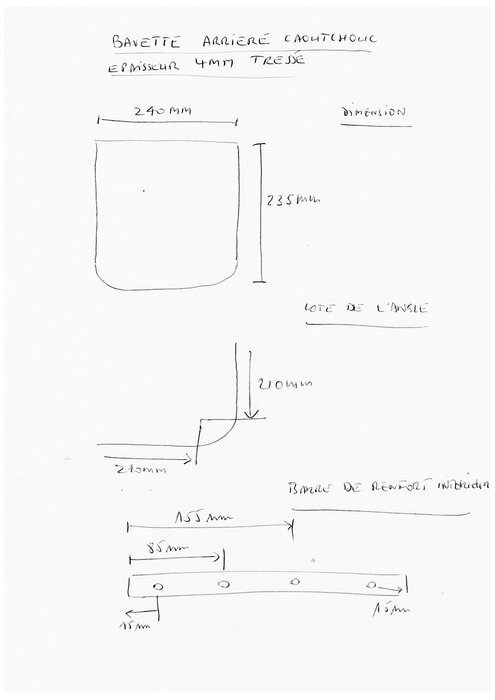 BAVETTE ARRIERE CAOUTCHOUC
EPAISSEUR 4MM TRESSÉ
240MM
DIMENSION
235MM
COTE DE L'ANGLE
210MM
210MM
BARRE DE RENFORT INTERIEUR
155MM
85MM
15MM
15MM